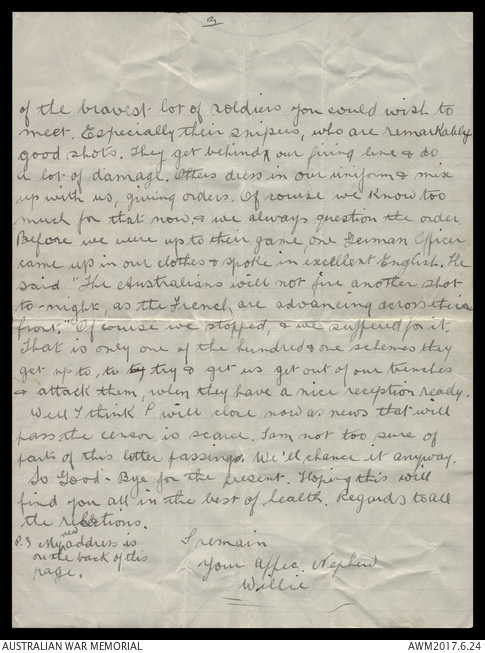 3
of the bravest lot of soldiers you could wish to
meet. Especially their snipers, who are remarkably
good shots. They get behind our firing line & do
a lot of damage. Others dress in our uniform & mix
up with us, giving orders. Of course we know too
much for that now, & we always question the order.
Before we were up to their game one German Officer
came up in our clothes & spoke in excellent English. He
said "The Australians will not fire another shot
to-night, as the French are advancing across their
front." Of course we stopped, & we suffered for it.
That is only one of the hundred & one schemes they
get up to, to try & get us get out of our trenches
& attack them, when they have a nice reception ready.
Well I think I will close now as news that will
pass the censor is scarce. I am not too sure of
parts of this letter passing. We'll chance it anyway.
So Good-Bye for the present. Hoping this will
find you all in the best of health. Regards to all
the relations.
I remain
Your Affec. Nephew
Willie
P.S My new address is
on the back of this
page.
AUSTRALIAN WAR MEMORIAL
AWM2017.6.24